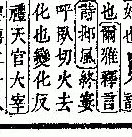 也爾雅釋言
詩邶風終窶
呼臥切火去
化也變化反
禮天官大宰